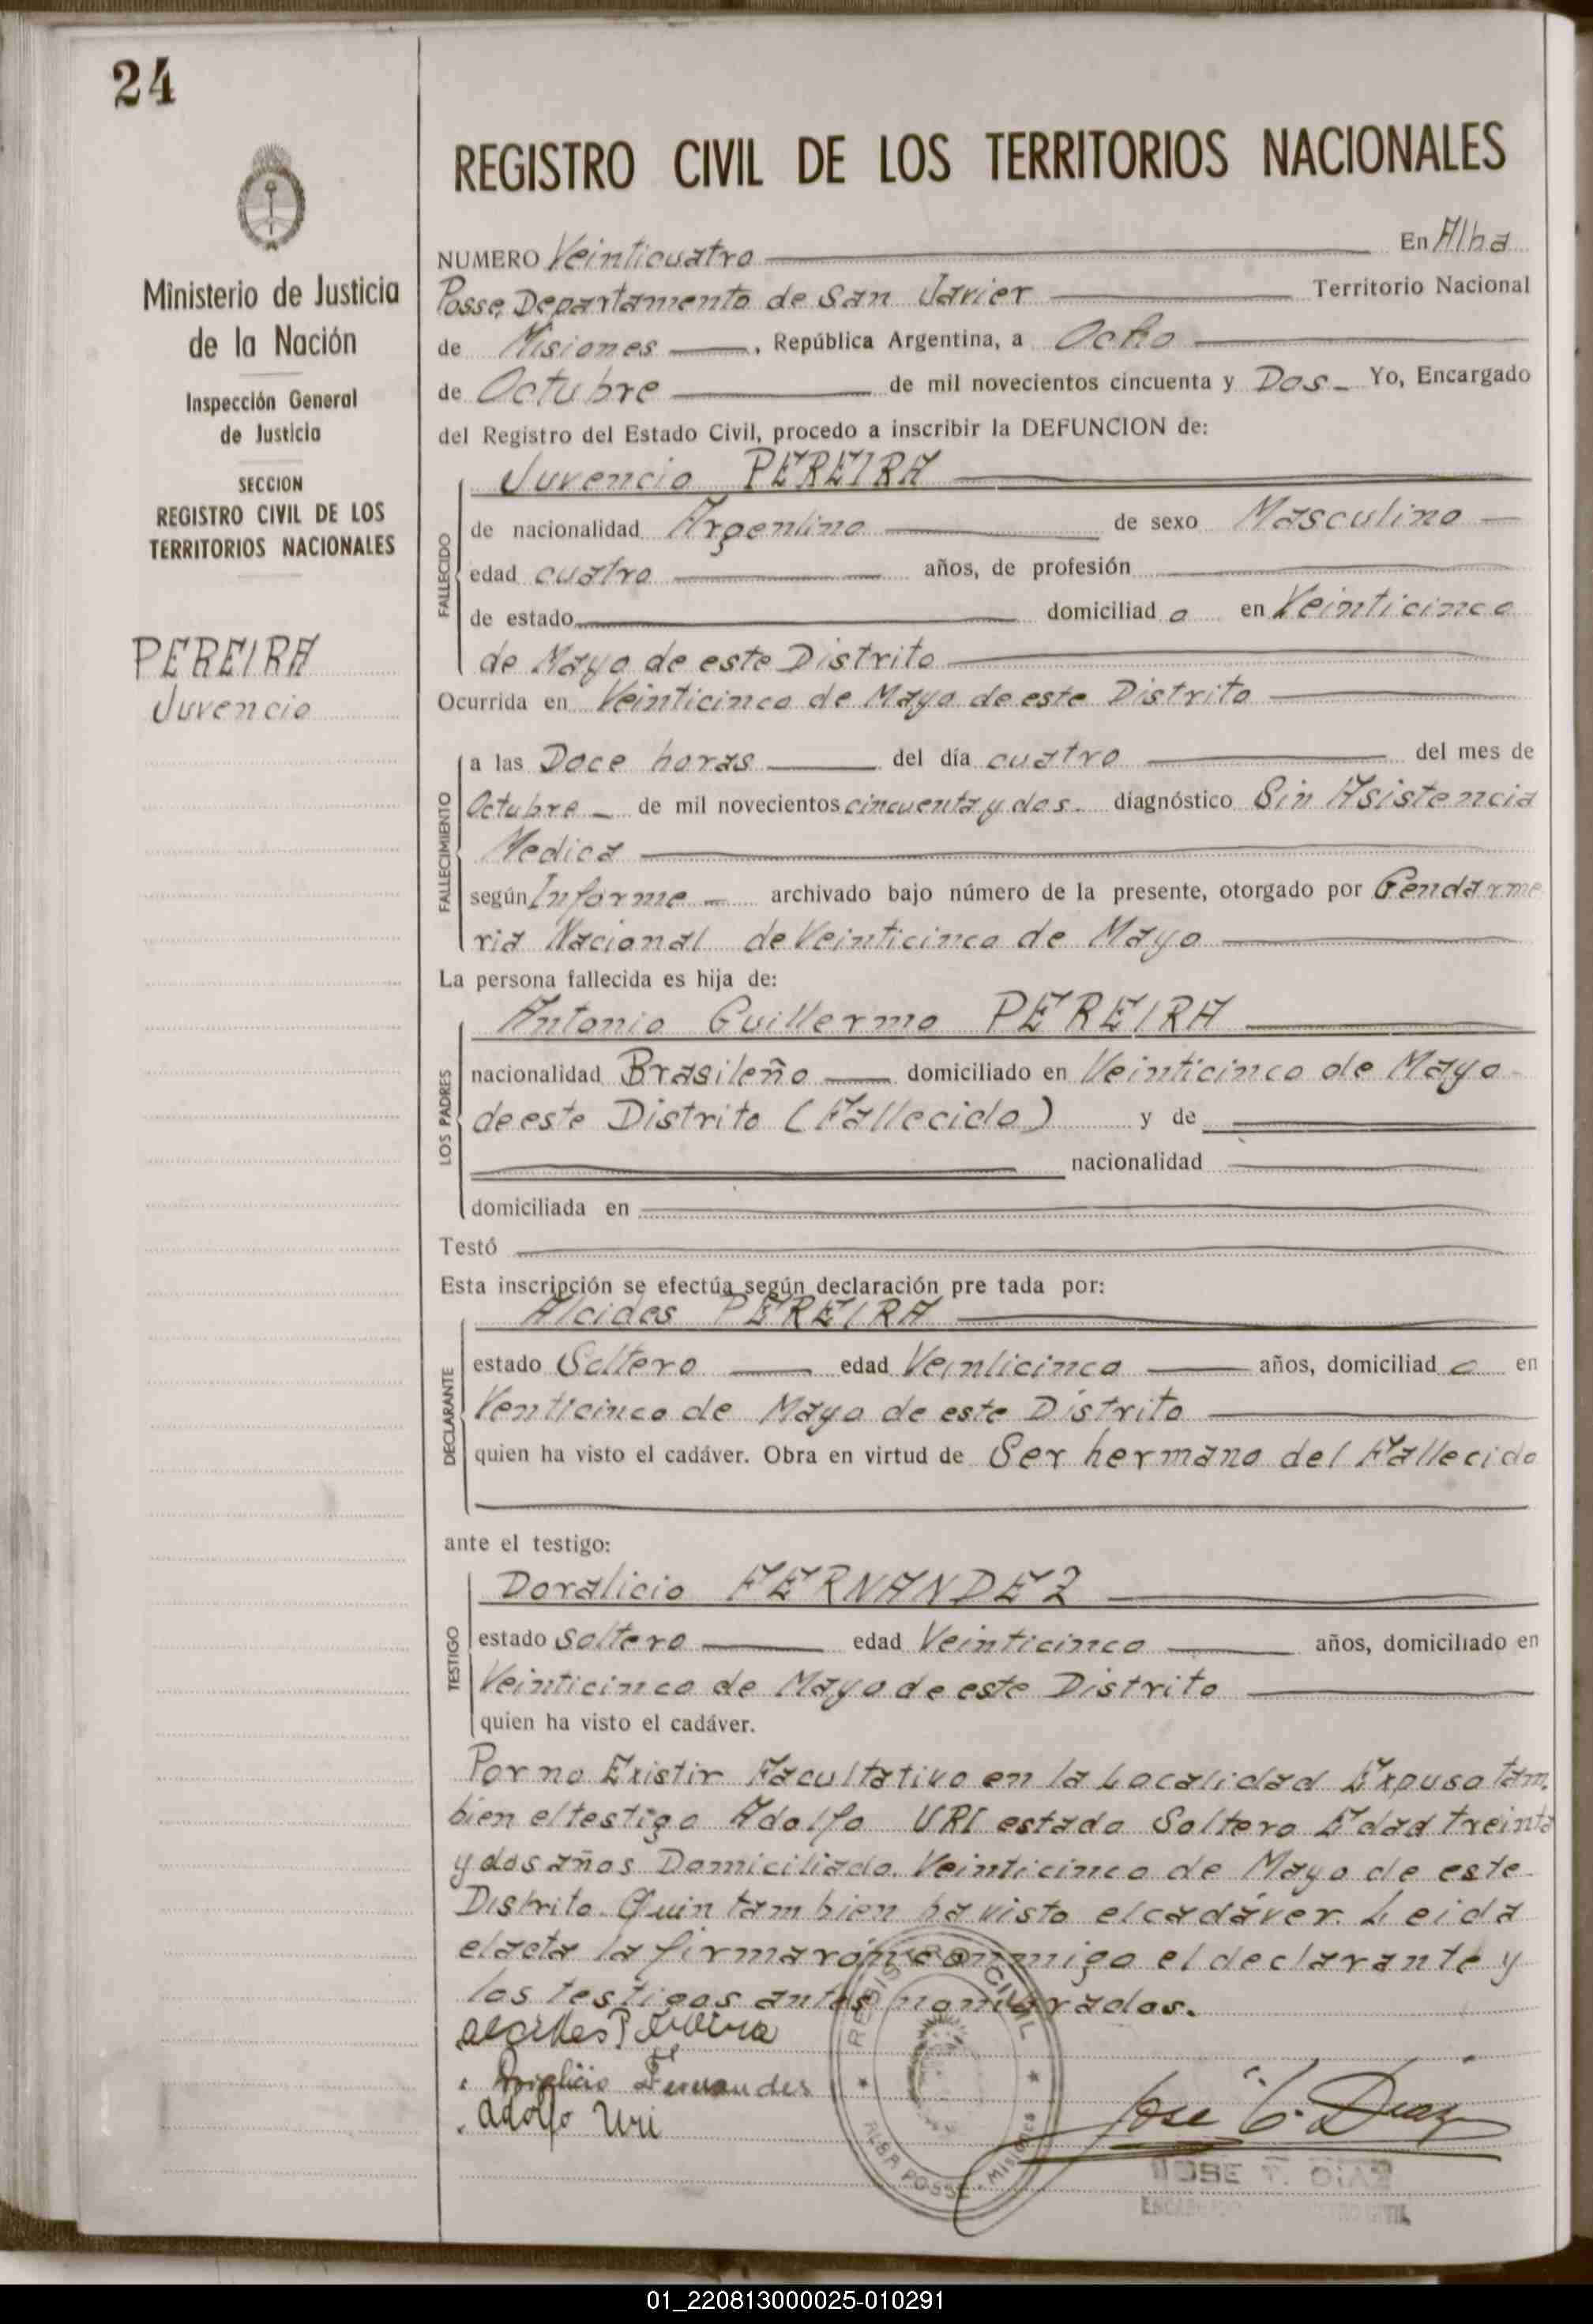 24
Ministerio de Justicia
de la Nación
Inspección General
de Justicia
SECCION
REGISTRO CIVIL DE LOS
TERRITORIOS NACIONALES
PEREIRA
Juvencio
REGISTRO CIVIL DE LOS TERRITORIOS NACIONALES
NUMERO Veinticuatro En Alba
Posse, Departamento de San Javier Territorio Nacional
de Misiones, República Argentina, a Ocho
de Octubre de mil novecientos cincuenta y Dos Yo, Encargado
del Registro del Estado Civil, procedo a inscribir la DEFUNCION de:
Juvencio PEREIRA
FALLECIDO
de nacionalidad Argentino de sexo Masculino
edad cuatro años, de profesión
de estado domiciliad o en Veinticinco
de Mayo de este Distrito
Ocurrida en Veinticinco de Mayo de este Distrito
FALLECIMIENTO
a las Doce horas del día cuatro del mes de
Octubre de mil novecientos cincuenta y dos. diagnóstico Sin Asistencia
Medica
según Informe archivado bajo número de la presente, otorgado por Gendarme
ria Nacional de Veinticinco de Mayo
La persona fallecida es hija de:
LOS PADRES
Antonio Guillermo PEREIRA
nacionalidad Brasileño domiciliado en Veinticinco de Mayo
de este Distrito (Fallecido) y de
nacionalidad
domiciliada en
Testó
Esta inscripción se efectúa según declaración pre tada por:
DECLARANTE
Alcides PEREIRA
estado Soltero edad Veinticinco años, domiciliad o en
Venticinco de Mayo de este Distrito
quien ha visto el cadáver. Obra en virtud de Ser hermano del Fallecido
ante el testigo:
TESTIGO
Doralicio FERNANDEZ
estado Soltero edad Veinticinco años, domiciliado en
Veinticinco de Mayo de este Distrito
quien ha visto el cadáver.
Por no Existir Facultativo en la Localidad Expuso tam
bien el testigo Adolfo URI estado Soltero Edad treinta
y dos años Domiciliado. Veinticinco de Mayo de este
Distrito. Quin tam bien ha visto el cadáver. Leida
el acta la firmarón conmigo el declarante y
los testigos antes nombrados.
alcides Pereira
Doralicio Fernandes
adolfo Uri
REGISTRO CIVIL
ALBA POSSE - Misiones
Jose T. Diaz
JOSE T. DIAZ
ENCARGADO REGISTRO CIVIL
01_220813000025-010291